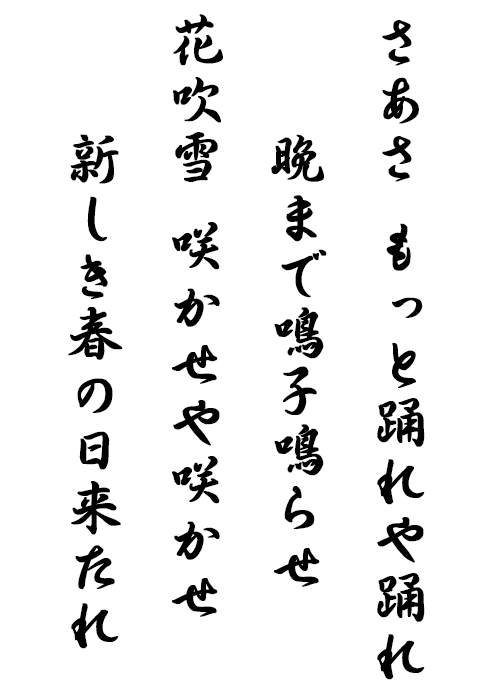 さあさ もっと踊れや踊れ
晩まで鳴子鳴らせ
花吹雪 咲かせや咲かせ
新しき春の日来たれ